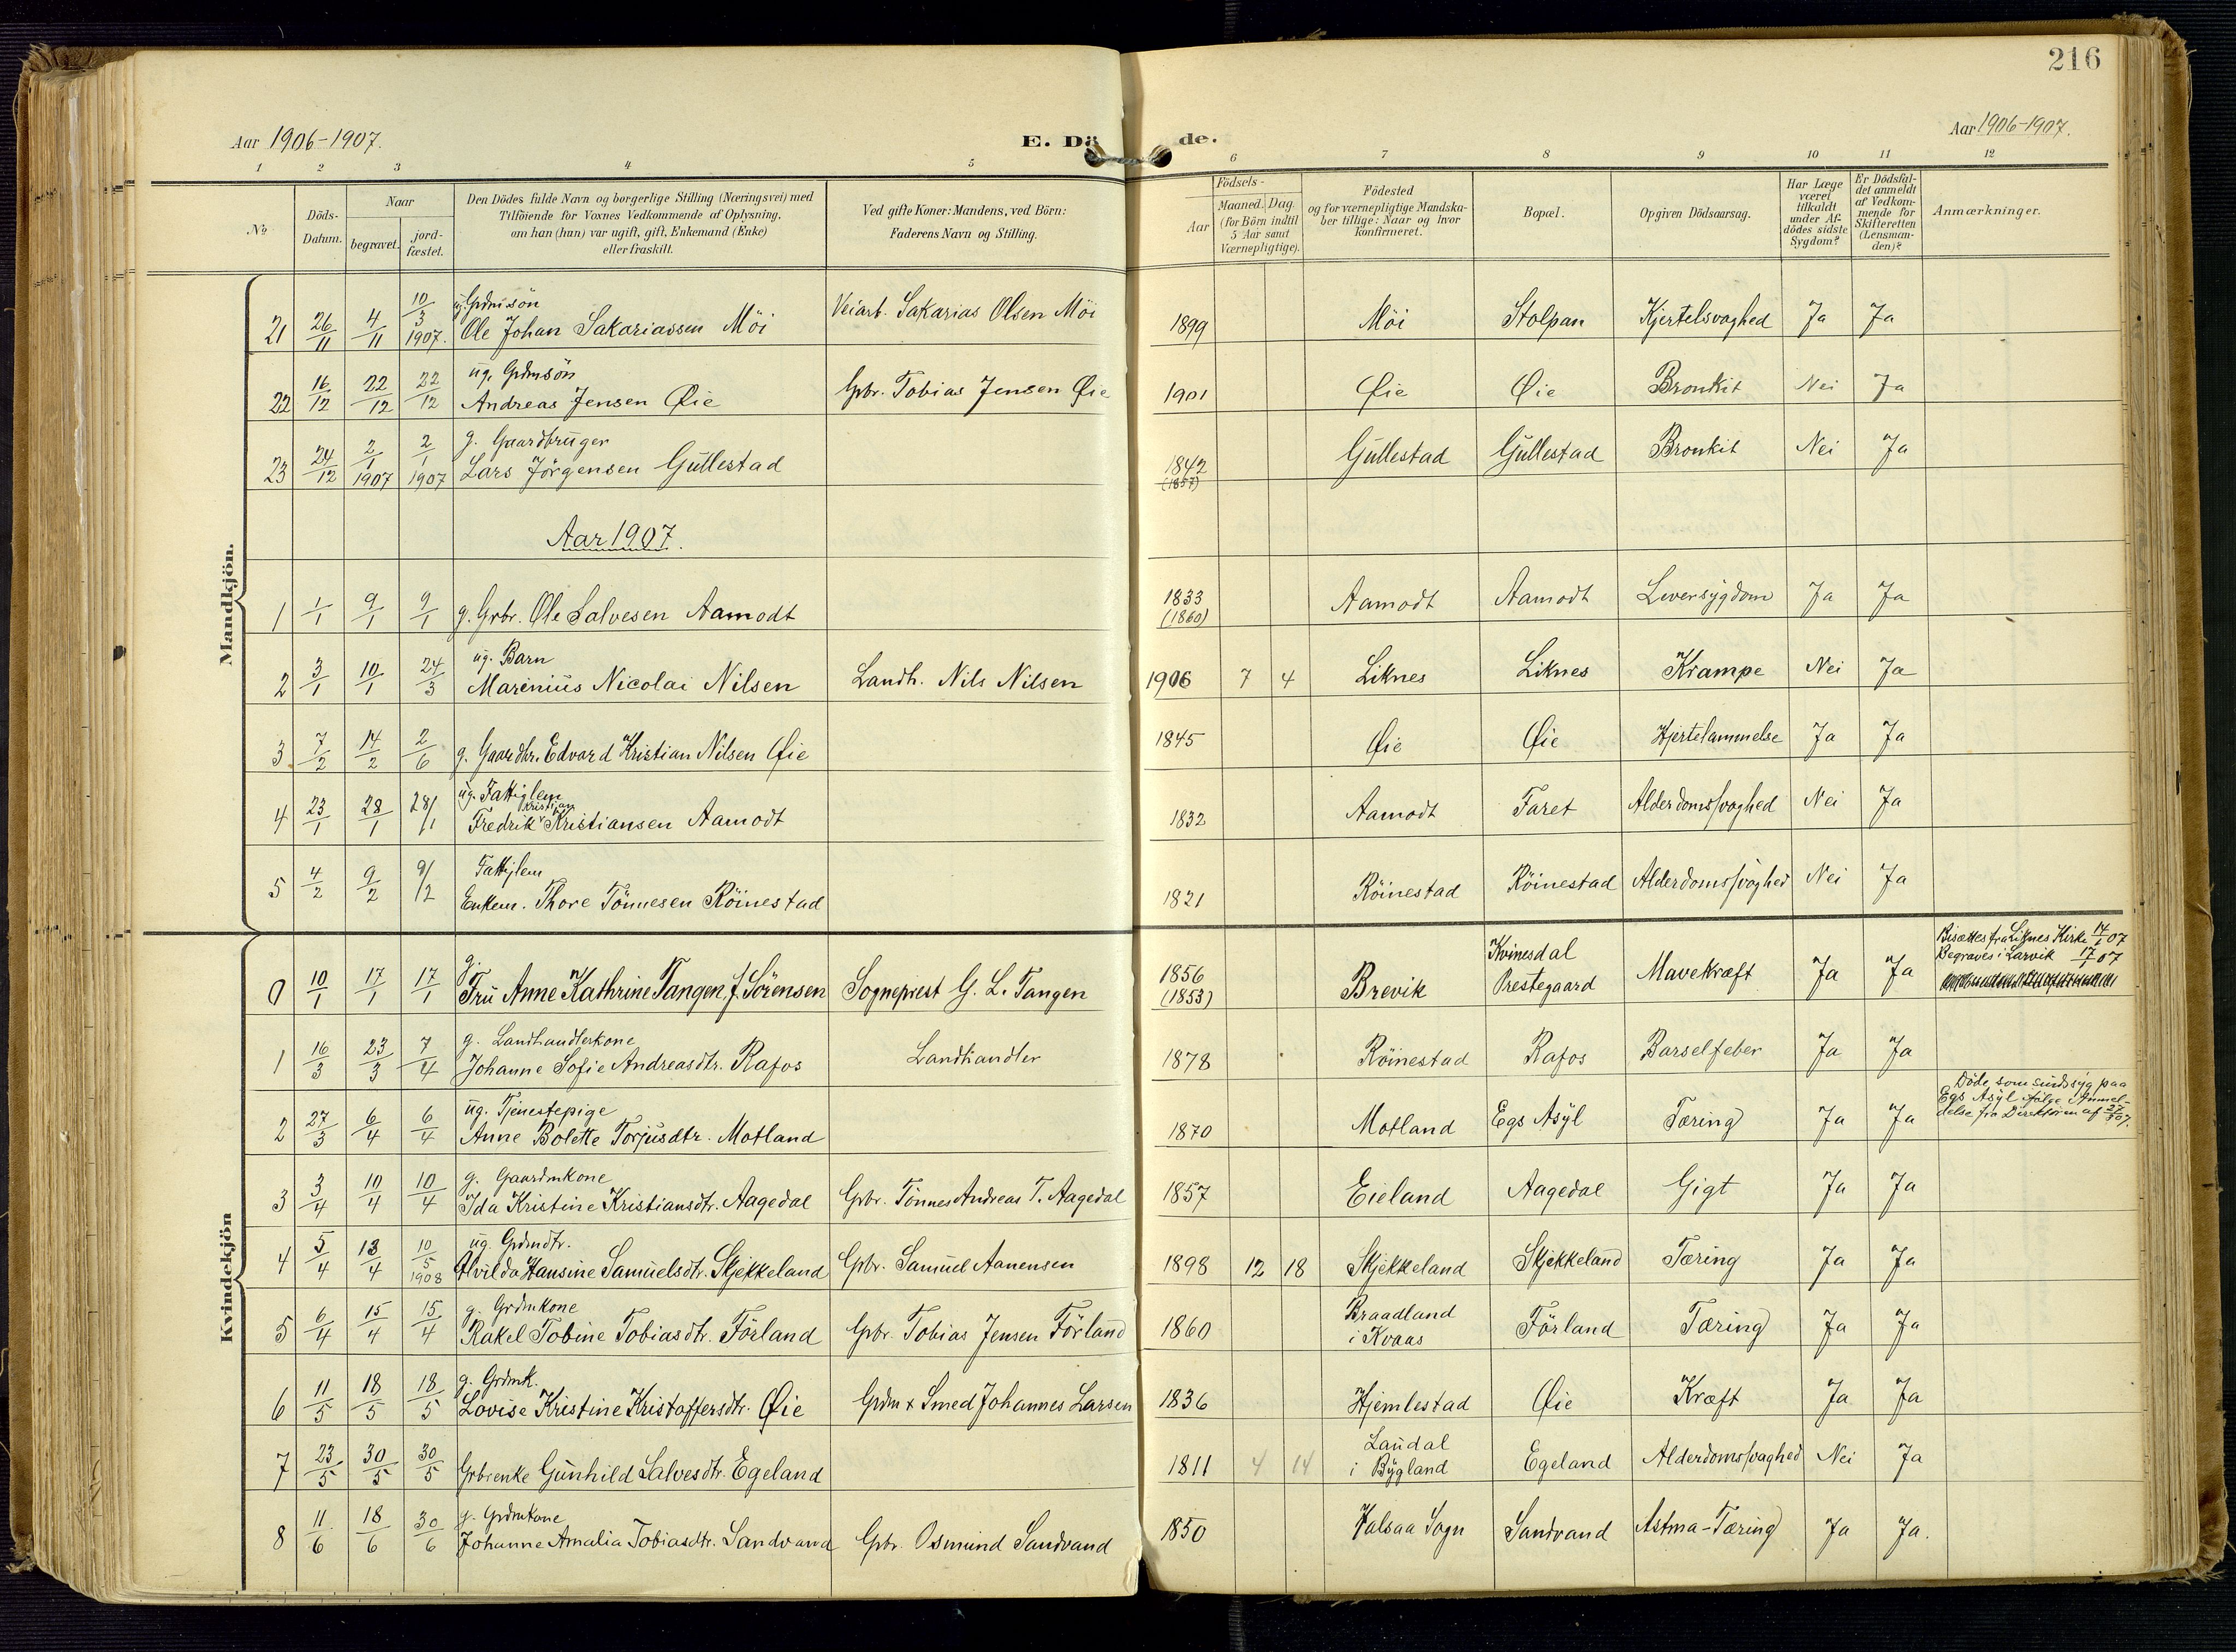 216
Aar 1906-1907.
E. Dö
de.
Aar 1906-1907.
1 2 3 4 5 6 7 8 9 10 11 12
No
Döds-Datum.
Naar
begravet.
jord-fæstet.
Den Dödes fulde Navn og borgerlige Stilling (Næringsvei) med
Tilföiende for Voxnes Vedkommende af Oplysning,
om han (hun) var ugift, gift, Enkemand (Enke)
eller fraskilt.
Ved gifte Koner: Mandens, ved Börn:
Faderens Navn og Stilling.
Födsels-
Aar
Maaned. Dag.
(for Börn indtil
5 Aar samt
Værnepligtige).
Födested
og for værnepligtige Mandska-
ber tillige: Naar og hvor
konfirmeret.
Bopæl.
Opgiven Dödsaarsag.
Har Læge
været
tilkaldt
under Af-
dödes sidste
Sygdom?
Er Dödsfal-
det anmeldt
af Vedkom-
mende for
Skifteretten
(Lensman-
den)?
Anmærkninger.
Mandkjön.
21 26/11 4/11 10/3 1907. ug. Grdmsön
Ole Johan Sakariassen Möi Veiarb. Sakarias Olsen Möi 1899 Möi Stolpan Kjertelsvaghed Ja Ja
22 16/12 22/12 22/12 ug. Grdmsön
Andreas Jensen Øie Gbr. Tobias Jensen Øie 1901 Øie Øie Bronkit Nei Ja
23 24/12 2/1 1907 2/1 1907 g. Gaardbruger
Lars Jörgensen Gullestad 1842 (1857) Gullestad Gullestad Bronkit Nei Ja
Aar 1907.
1 1/1 9/1 9/1 g. Grbr. Ole Salvesen Aamodt 1833 (1860) Aamodt Aamodt Leversygdom Ja Ja
2 3/1 10/1 24/3 ug. Barn
Marinius Nicolai Nilsen Landh. Nils Nilsen 1906 7 4 Liknes Liknes Krampe Nei Ja
3 7/2 14/2 2/6 g. Gaardbr. Edvard Kristian Nilsen Øie 1845 Øie Øie Hjertelammelse Ja Ja
4 23/1 28/1 28/1 ug. Fattiglem
Kristian
Fredrik Kristiansen Aamodt 1832 Aamodt Faret Alderdomssvaghed Nei Ja
5 4/2 9/2 9/2 Fattiglem
Enkem. Thore Tönnesen Röinestad 1821 Röinestad Röinestad Alderdomssvaghed Nei Ja
Kvindekjön
0 10/1 17/1 17/1 g.
Fru Anne Kathrine Tangen, f. Sörensen Sogneprest G. L. Tangen 1856 (1853) Brevik Kvinesdal Prestegaard Mavekræft Ja Ja Bisættes fra Liknes Kirke 14/1 07
Begraves i Larvik 17/1 07
1 16/3 23/3 7/4 g. Landhandlerkone
Johanne Sofie Andreasdtr. Rafos Landhandler 1878 Röinestad Rafos Barselfeber Ja Ja
2 27/3 6/4 6/4 ug. Tjenestepige
Anne Bolette Torjusdtr. Motland 1870 Motland Egs Asyl Tæring Ja Ja Döde som sindssyg paa
Egs Asyl ifölge Anmel-
delse fra Direktören af 27/3 07.
3 3/4 10/4 10/4 g. Gaardmkone
Ida Kristine Kristiansdtr. Aagedal Gbr. Tönnes Andreas T. Aagedal 1857 Eieland Aagedal Gigt Ja Ja
4 5/4 13/4 10/5 1908 ug. Grdmdtr.
Alvilda Hansine Samuelsdtr. Skjekkeland Gbr. Samuel Aanensen 1898 12 18 Skjekkeland Skjekkeland Tæring Ja Ja
5 6/4 15/4 15/4 g. Grdmkone
Rakel Tobine Tobiasdtr. Förland Gbr. Tobias Jensen Förland 1860 Braadland
i Kvaas Förland Tæring Ja Ja
6 11/5 18/5 18/5 g. Grdmk.
Lovise Kristine Kristoffersdtr. Øie Grdm + Smed Johannes Larsen 1836 Hjemlestad Øie Kræft Ja Ja
7 23/5 30/5 30/5 Grbrenke Gunhild Salvesdtr. Egeland 1811 4 14 Laudal
i Bygland Egeland Alderdomssvaghed Nei Ja
8 11/6 18/6 30/6 g. Grdmkone
Johanne Amalia Tobiasdtr. Sandvand Gbr. Osmund Sandvand 1850 Valsaa Sogn Sandvand Astma-Tæring Ja Ja.